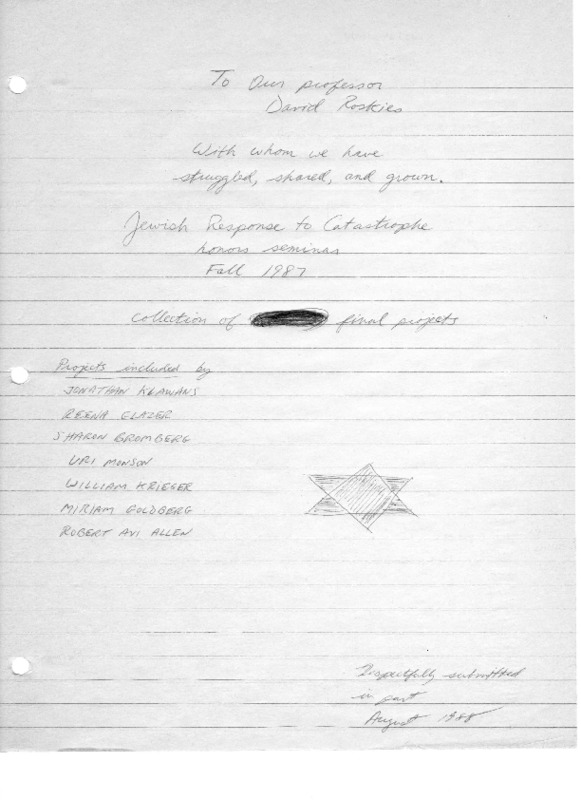 To Our professor
David Roskies
With whom we have
struggled, shared, and grown.
Jewish Response to Catastrophe
honors seminar
Fall 1987
collection of final projects
Projects included by
JONATHAN KLAWANS
REENA GLAZER
SHARON BROMBERG
URI MONSON
WILLIAM KRIEGER
MIRIAM GOLDBERG
ROBERT AVI ALLEN
Respectfully submitted
in part
August 1988